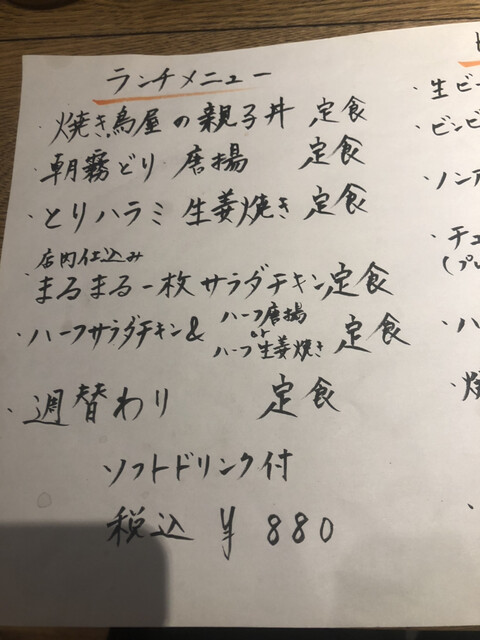 ランチメニュー
・焼き鳥屋の親子丼 定食
・朝霧どり 唐揚 定食
・とりハラミ 生姜焼き 定食
店内仕込み
・まるまる一枚サラダチキン定食
・ハーフサラダチキン& ハーフ唐揚 or ハーフ生姜焼き 定食
・週替わり 定食
ソフトドリンク付
税込 ¥880
・生ビー
・ビンビ
・ノンア
・チュ
(プレ
・ハ